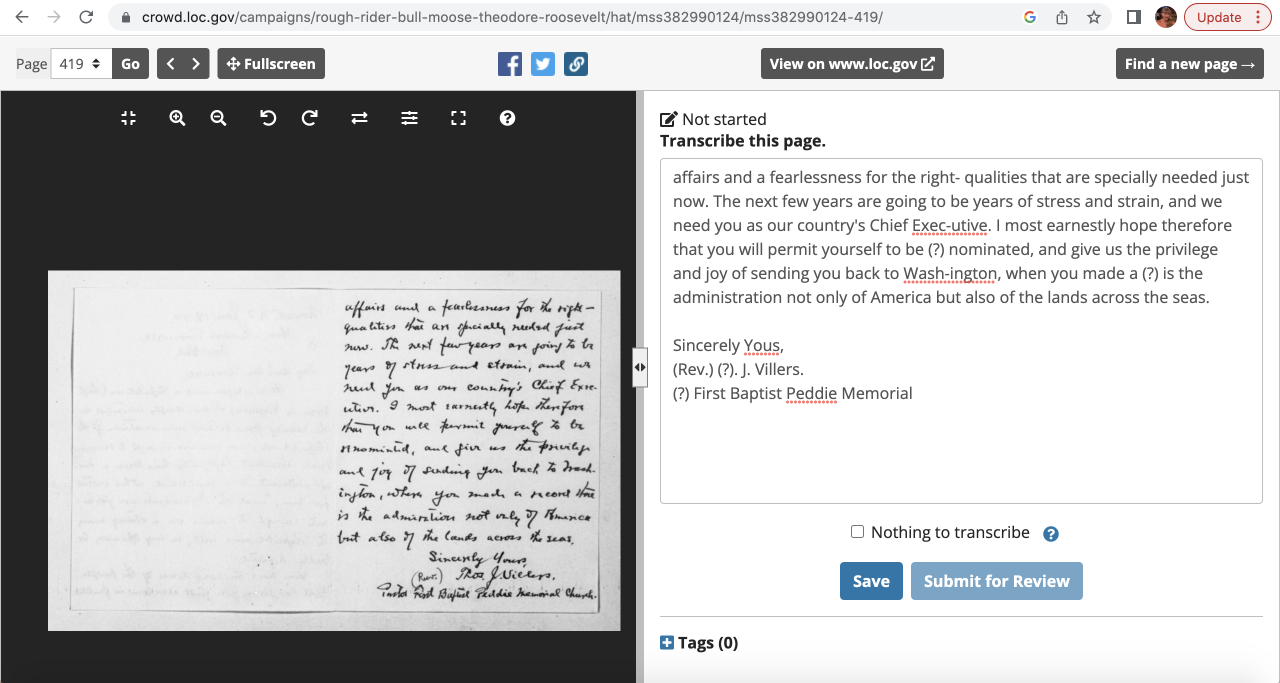 crowd.loc.gov/campaigns/rough-rider-bull-moose-theodore-roosevelt/hat/mss382990124/mss382990124-419/
Update
Page 419 Go Fullscreen
View on www.loc.gov
Find a new page →
Not started
Transcribe this page.
affairs and a fearlessness for the right- qualities that are specially needed just
now. The next few years are going to be years of stress and strain, and we
need you as our country's Chief Exec-utive. I most earnestly hope therefore
that you will permit yourself to be (?) nominated, and give us the privilege
and joy of sending you back to Wash-ington, when you made a (?) is the
administration not only of America but also of the lands across the seas.
Sincerely Yous,
(Rev.) (?). J. Villers.
(?) First Baptist Peddie Memorial
Nothing to transcribe
Save
Submit for Review
Tags (0)
affairs and a fearlessness for the right—
qualities that are specially needed just
now. The next few years are going to be
years of stress and strain, and we
need you as our country's Chief Exec-
utive. I most earnestly hope therefore
that you will permit yourself to be
nominated, and give us the privilege
and joy of sending you back to Wash-
ington, where you made a record that
is the admiration not only of America
but also of the lands across the seas.
Sincerely Yours,
(Rev.) Thos. J. Villers.
Pastor First Baptist Peddie Memorial Church.